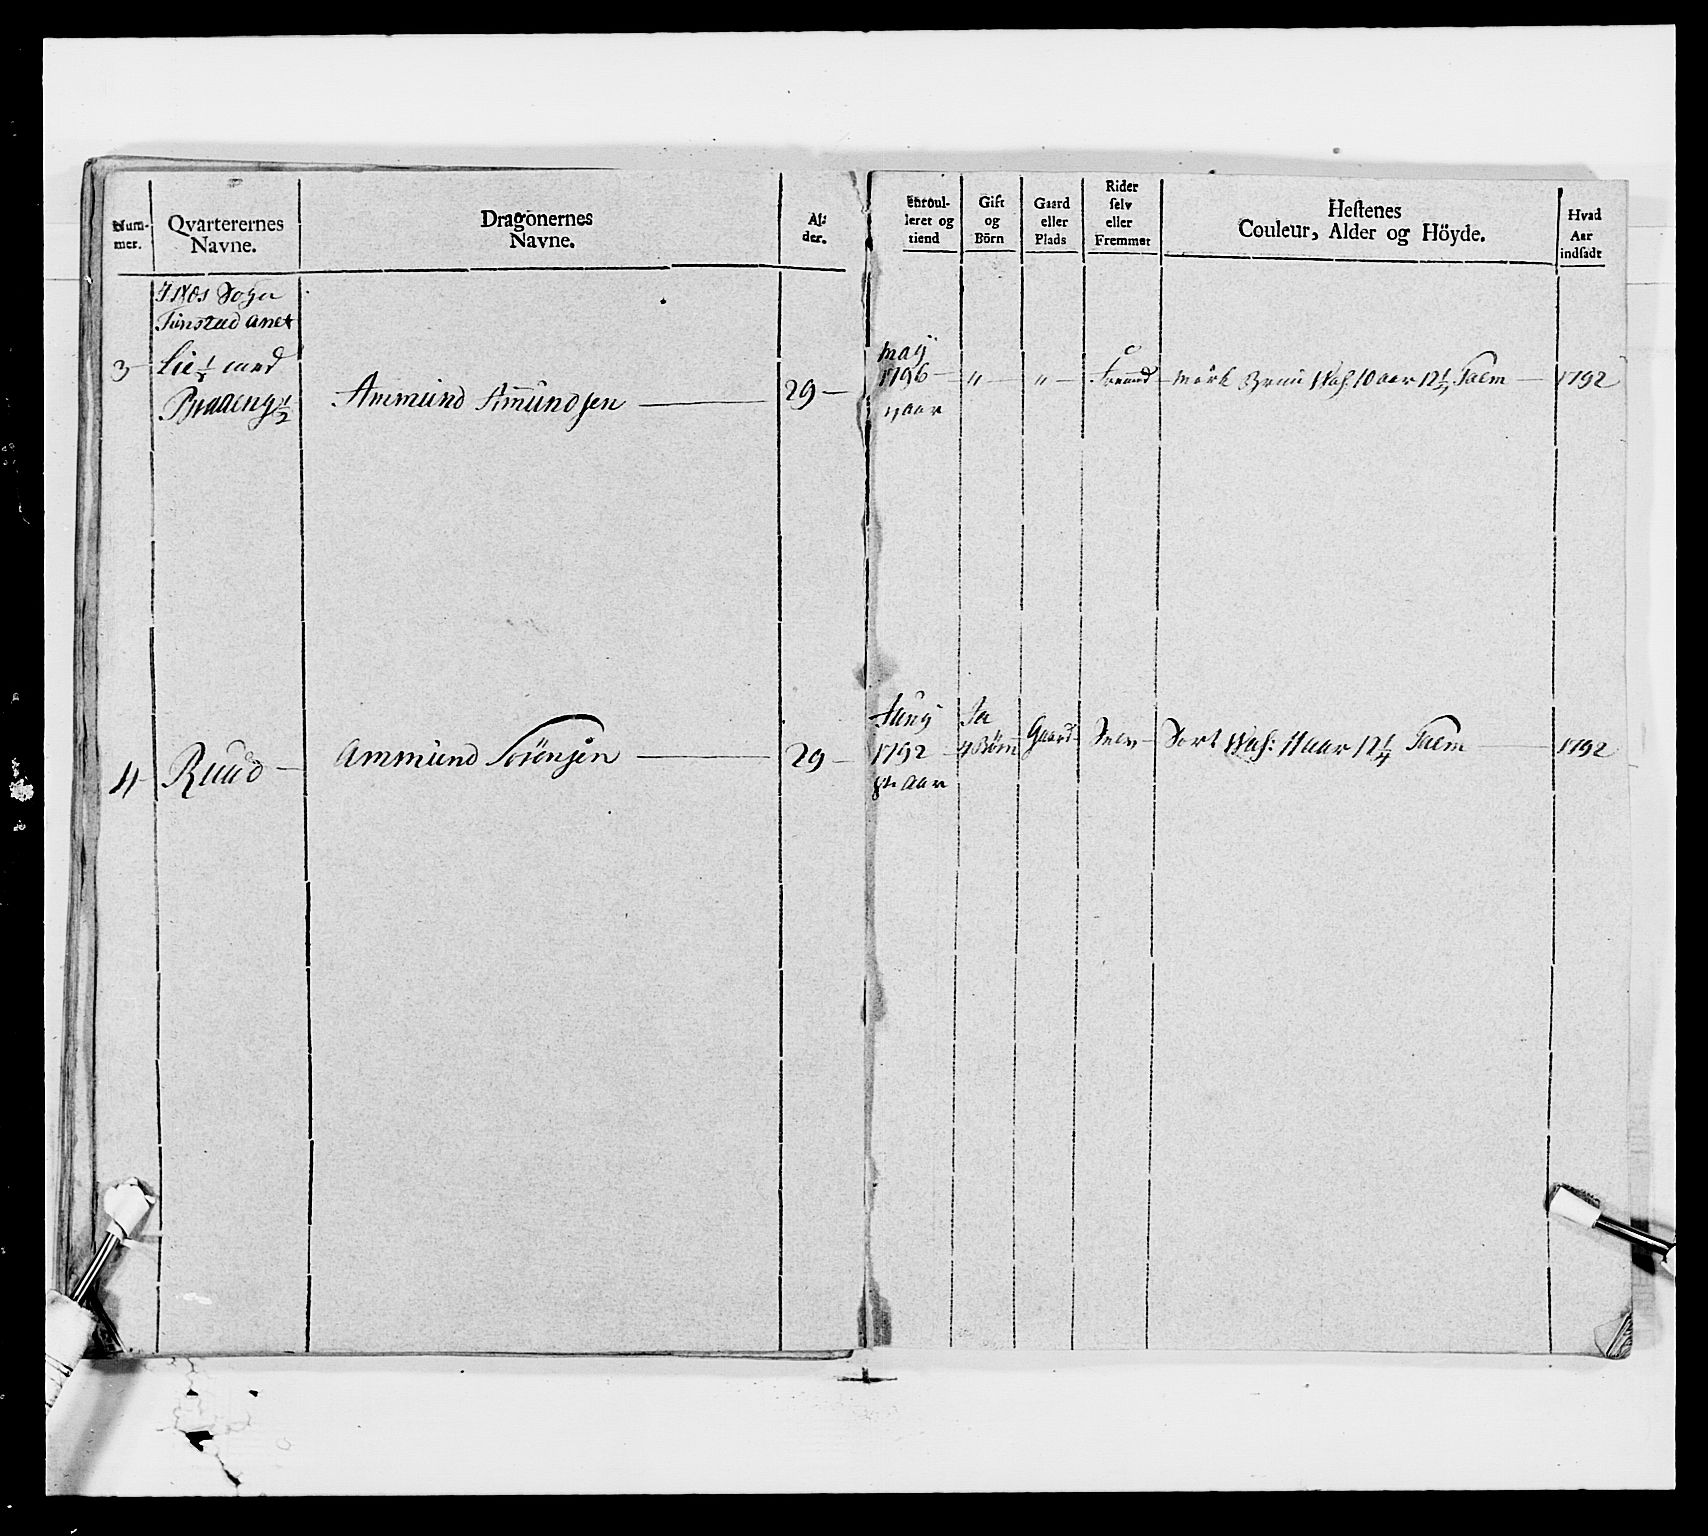 Num-
mer.
Qvarterernes
Navne.
Dragonernes
Navne.
Al-
der.
Enroul-
leret og
tiend
Gift
og
Börn
Gaard
eller
Plads
Rider
selv
eller
Fremmet
Hestenes
Couleur, Alder og Höyde.
Hvad
Aar
indsadt
Næs Sogn
Tingstad anet
3
Lie ½ med
Braaeng ½
Ammund Amundsen
29
Maij
1796
4 aar
"
"
Fremd
Mörk Brun Wal: 10 aar 12½ Palm
1792
4
Ruud
Ammund Sörensen
29
Junij
1792
8te aar
Ja
4 Börn
Gaard
Selv
Sort Wal: 11 aar 12¼ Palm
1792